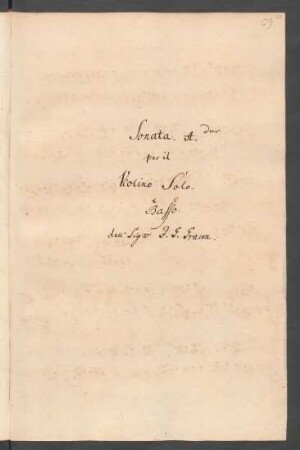 59
Sonata. A. dur
per il
Violino Solo.
è Basso
del Sigr J. G. Graun.